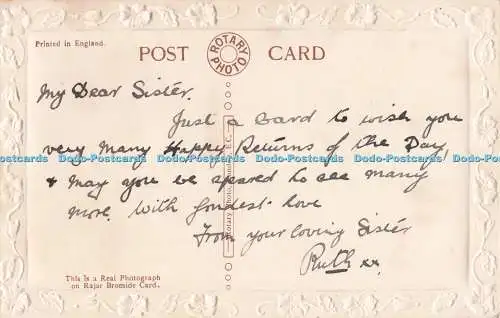 Printed in England.
POST CARD
ROTARY PHOTO
My Dear Sister.
Just a Card to wish you
very Many Happy Returns of the Day,
Dodo-Postcards Dodo-Postcards Dodo-Postcards Dodo-Postcards Dodo-Postcards Dodo-Postcards
& May you be spared to see many
more. with fondest love
From your loving Sister
Ruth xx.
Rotary Photo, E.C.
This Is a Real Photograph
on Rajar Bromide Card.